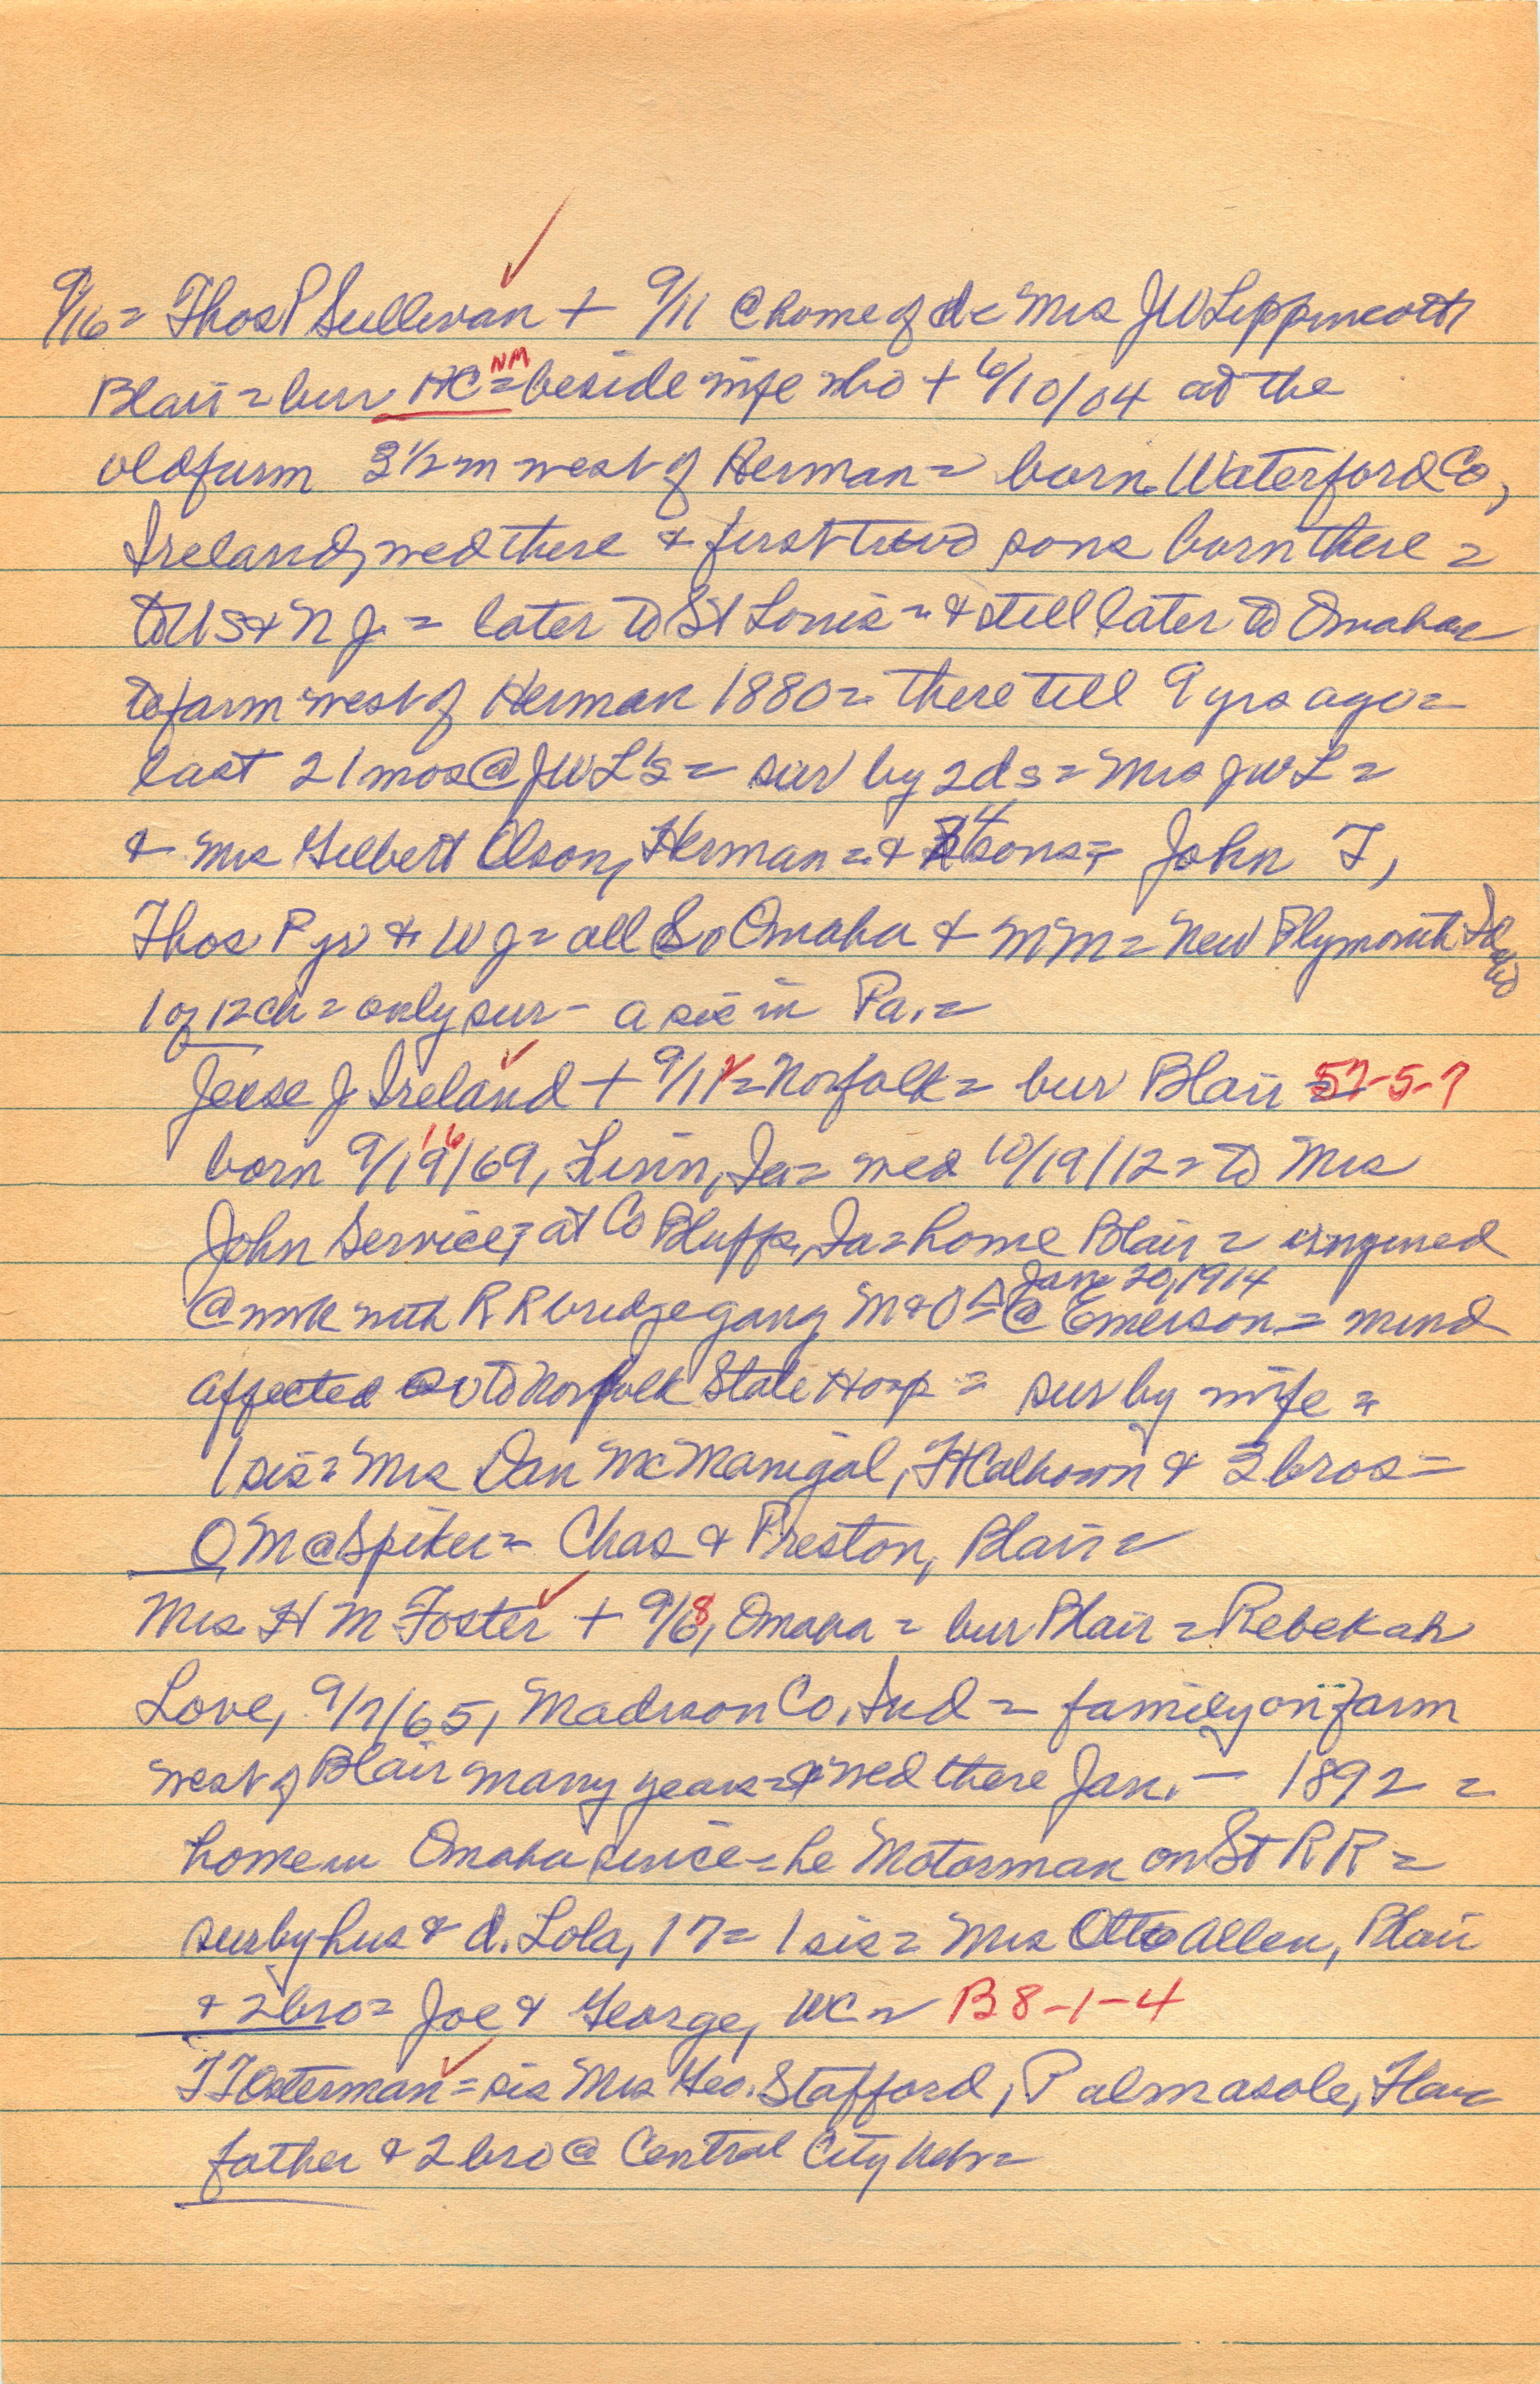 9/16 = Thos P Sullivan + 9/11 @ home of d = Mrs JW Lippincott
Blair = bur HC = NM beside wife who + 6/10/04 at the
old farm 3 1/2 m west of Herman = born Waterford Co,
Ireland, wed there & first two sons born there =
to US & N J. = later to St Louis = & still later to Omaha &
to farm west of Herman 1880 = there till 9 yrs ago =
last 21 mos @ JWL's = sur by 2 ds = Mrs JWL =
& Mrs Gilbert Olson, Herman = & 4 sons = John T,
Thos P Jr & W J = all So Omaha & MM = New Plymouth Idaho
1 of 12 ch = only sur - a sis in Pa. =
Jesse J Ireland + 9/11 = Norfolk = bur Blair = 57-5-7
born 9/19/69, 16 Linn, Ia = wed 10/19/12 = to Mrs
John Service, at Co Bluffs, Ia = home Blair = injured
@ work with RR bridge gang M & O = @ Emerson = mind
Jan 20, 1914
affected & to Norfolk State Hosp = sur by wife =
1 sis = Mrs Dan McManigal, Ft Calhoun & 3 bros =
O M @ Spiker = Chas & Preston, Blair =
Mrs. H M Foster + 9/8, Omaha = bur Blair = Rebekah
Love, 9/7/65, Madison Co, Ind = family on farm
west of Blair many years = & wed there Jan. - 1892 =
home in Omaha since = he Motorman on St RR =
sur by hus & d. Lola, 17 = 1 sis = Mrs Otto Allen, Blair
& 2 bro = Joe & George, WC = B 8-1-4
T T Osterman = sis Mrs Geo. Stafford, Palmasole, Fla =
father & 2 bro @ Central City Nebr =